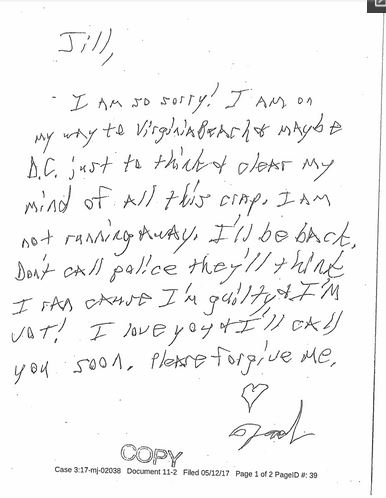 Jill,
I AM so sorry! I AM on
my way to VirginiABeach & mAybe
D.C. just to think & cleAr My
mind of All this crAp. I AM
not running AwAy. I'll be bAck.
Don't cAll police they'll think
I rAn cAuse I'm guilty & I'M
NOT! I love you & I'll cAll
you soon. PleAse forgive me.
COPY
Case 3:17-mj-02038 Document 11-2 Filed 05/12/17 Page 1 of 2 PageID #: 39